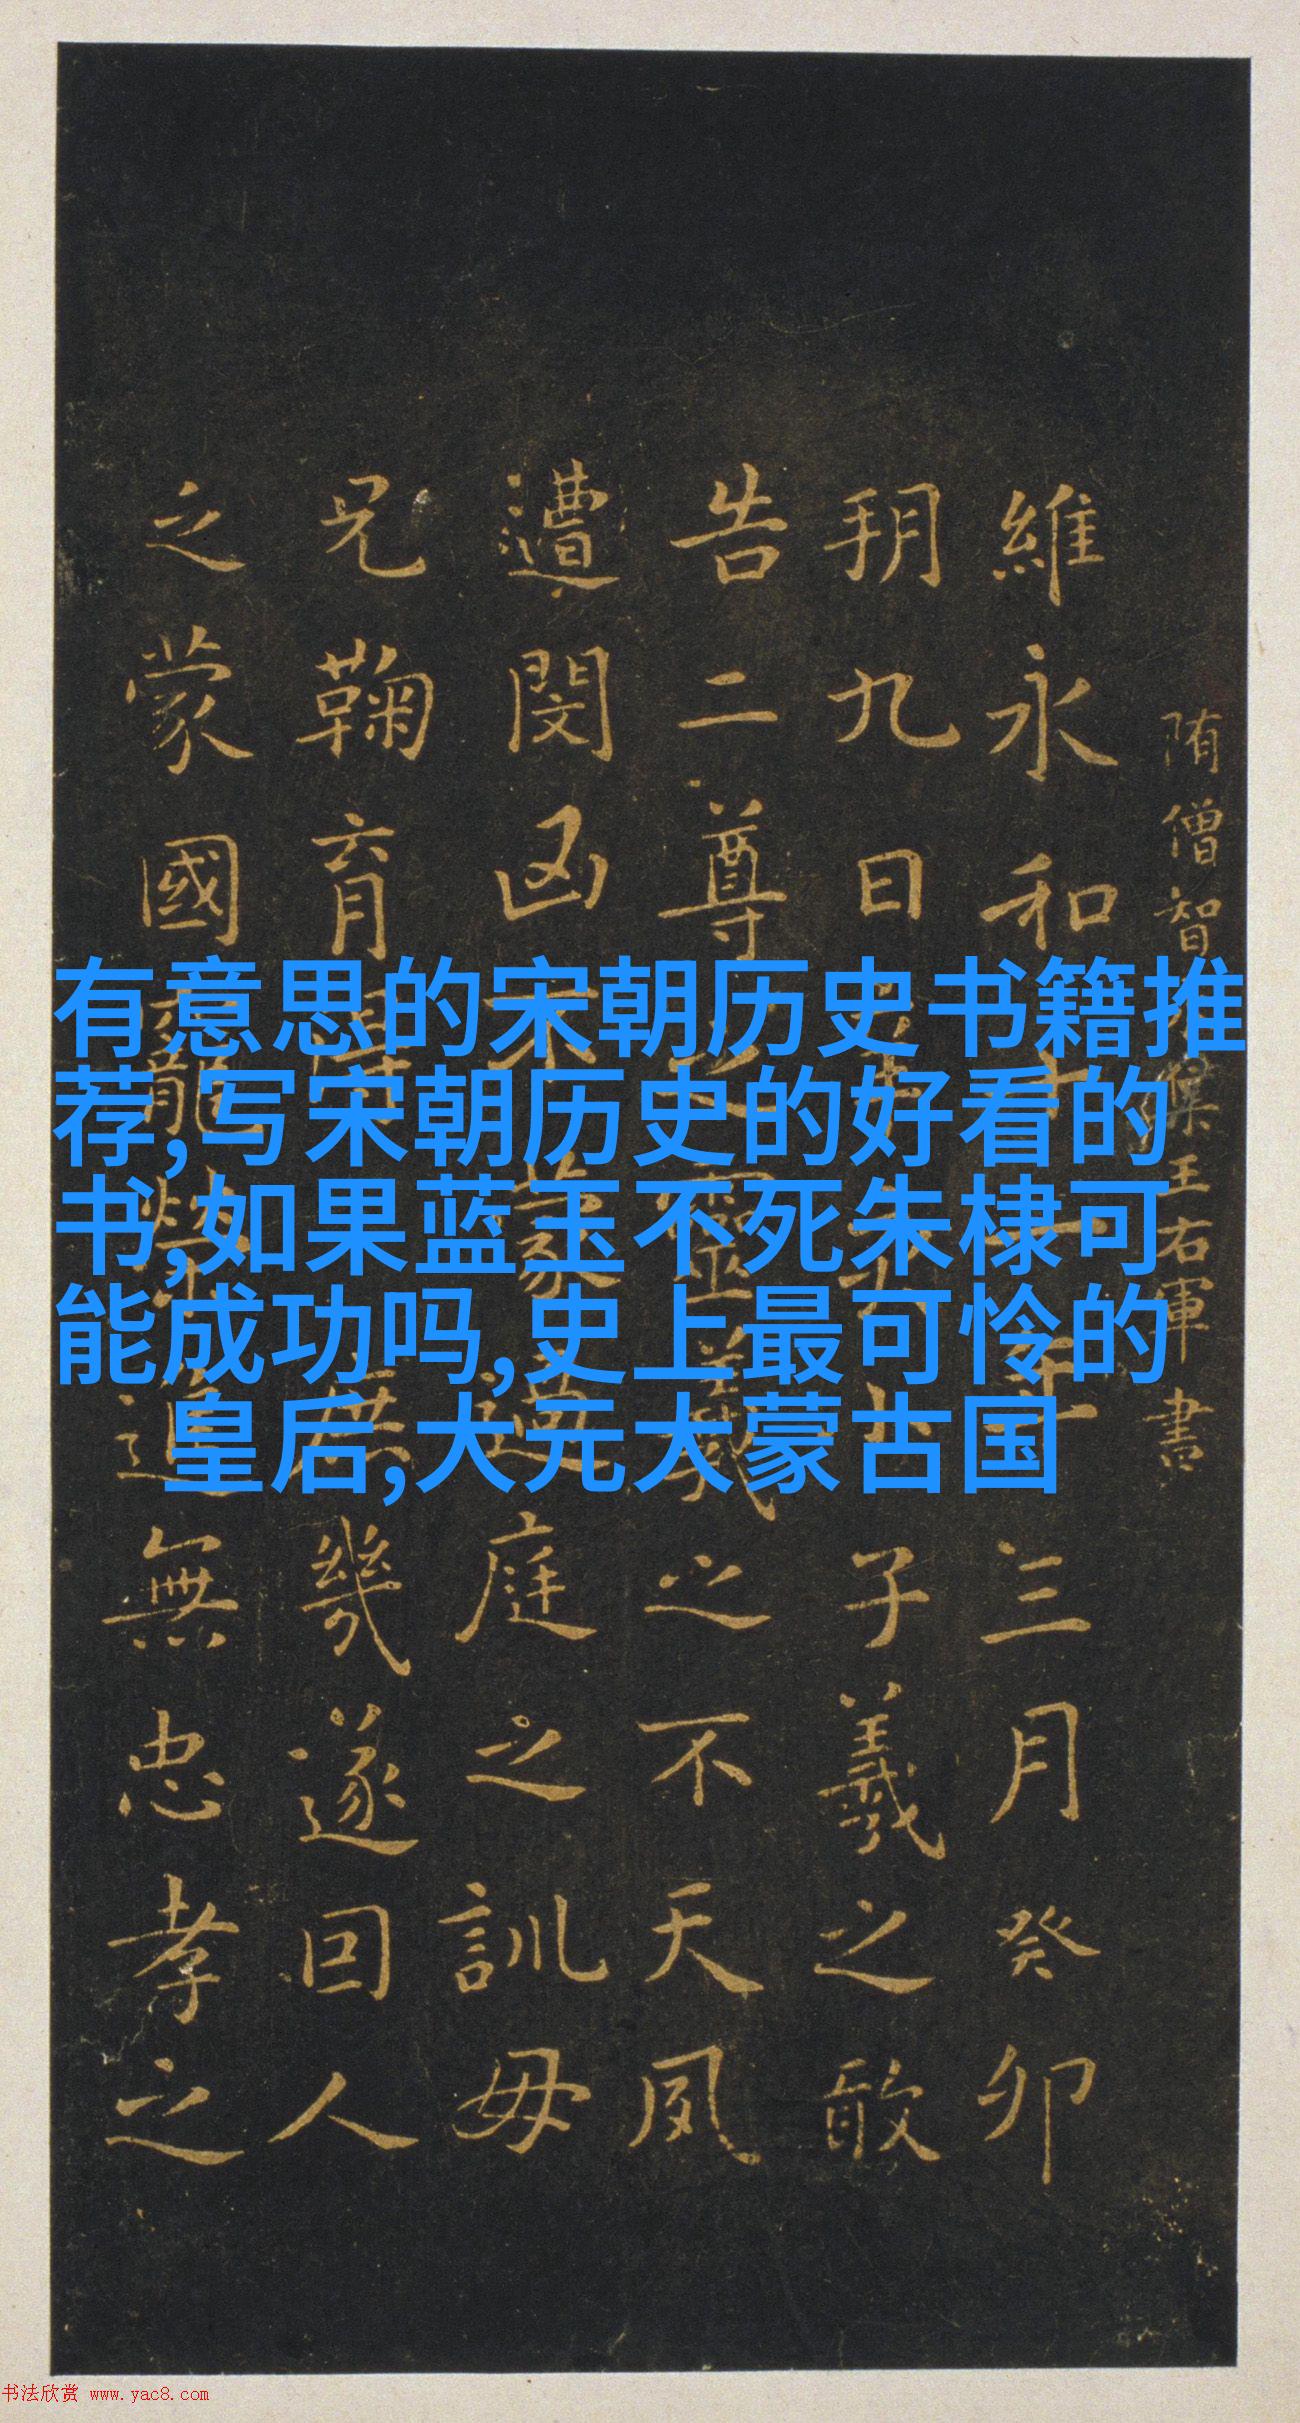 隋僧智
王右軍書
維永和
三月癸卯
朔九日
子羲之敢
告二尊
之不天夙
遭閔凶
庭之訓毋
兄鞠育
幾遂回人
之蒙國
無忠孝之
有意思的宋朝历史书籍推
荐,写宋朝历史的好看的
书,如果蓝玉不死朱棣可
能成功吗,史上最可怜的
皇后,大元大蒙古国
书法欣赏 www.yac8.com